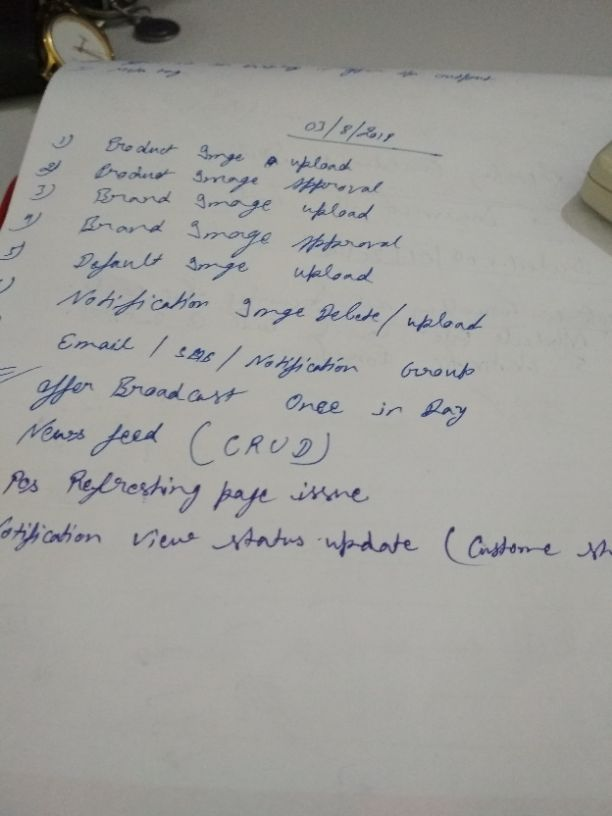 03/8/2018
1) Product Imge upload
2) Product Image Approval
3) Brand Image upload
4) Brand Image Approval
5) Default Imge upload
Notification Imge Delete/upload
Email / SMS / Notification Group
offer Broadcast Once in Day
News feed (CRUD)
Pos Refreshing page issue
Notification view status update (Custome